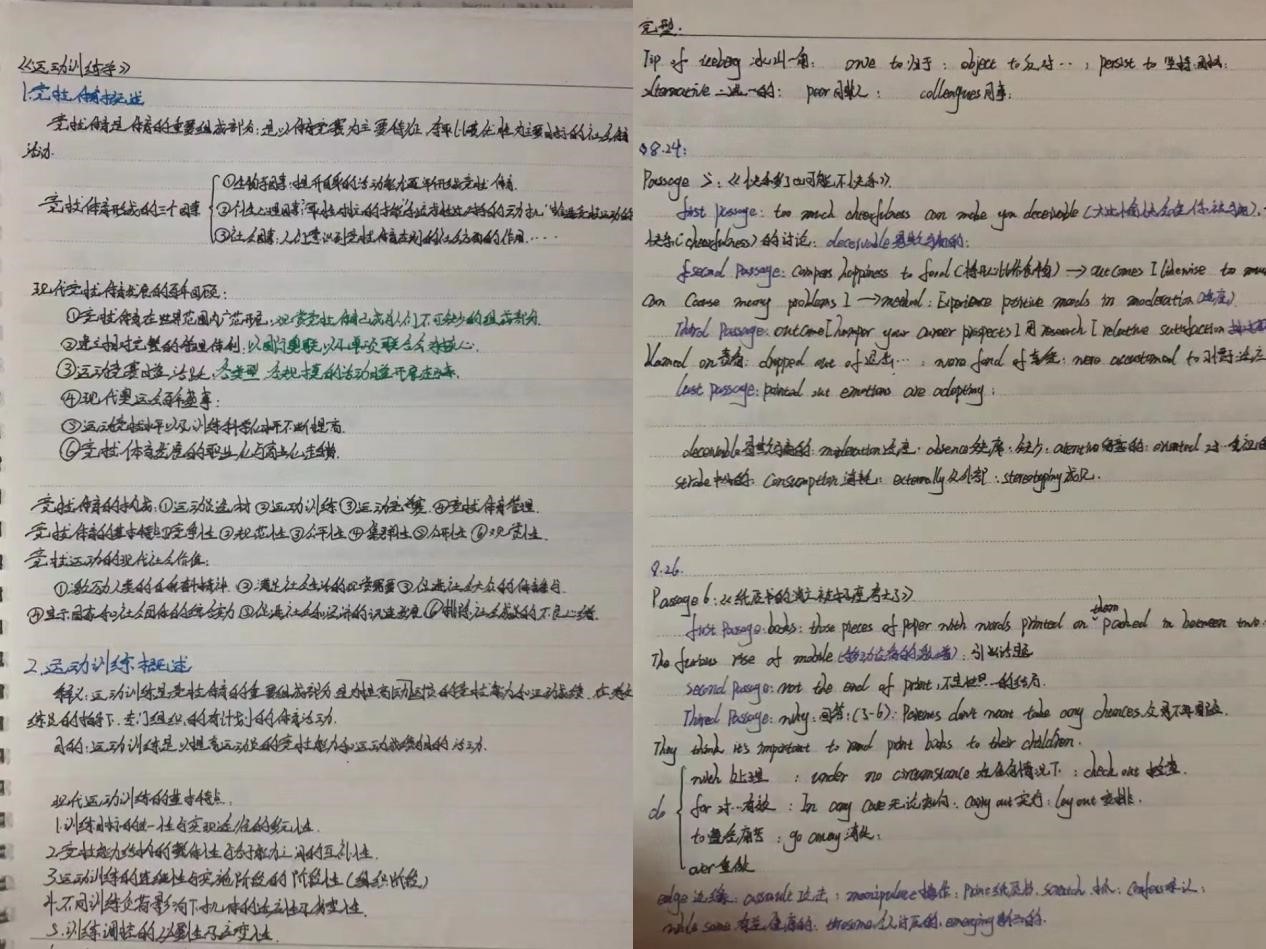 《运动训练学》
1.竞技体育概述
竞技体育是体育的重要组成部分,是以体育竞赛为主要特征,夺取比赛优胜为主要目标的社会体育
活动.
竞技体育形成的三个因素
①生物学因素:提升自身的活动能力逐渐形成竞技体育.
③社会因素:人们意识到竞技体育在别的社会方面的作用....
现代竞技体育发展的历年回顾:
①竞技体育在世界范围内广泛开展,观赏竞技体育已成人们不可缺少的组成部分.
②建立相对完整的管理体制:以国际奥联,以单项联合会为核心.
③运动竞赛日益活跃,各类型,各规模的活动日益开展起来.
④现代奥运会百年盛事:
⑤运动竞技水平以及训练科学化水平不断提高.
⑥竞技体育发展的职业化与商业化走势.
竞技体育的构成:①运动员选材②运动训练③运动竞赛.④竞技体育管理.
竞技体育的基本特点:①竞争性②规范性③公平性④集群性⑤公开性⑥观赏性.
竞技运动的现代社会价值:
①激励人类的自强精神.②满足社会生活的观赏需要③促进社会大众的体育参与.
④显示国家和社会团体的综合实力⑤促进社会和经济的迅速发展⑥排除社会成员的不良心绪.
2.运动训练概述
释义:运动训练是竞技体育的重要组成部分是为提高运动员的竞技能力和运动成绩.在教
练员的指导下,专门组织的有计划的体育活动.
目的:运动训练是以提高运动员的竞技能力和运动成绩为目的活动.
现代运动训练的基本特点.
1.训练目标的专一性与实现途径的多元性.
2.竞技能力结构的整体性与各子能力之间的互补性.
3.运动训练的连续性与实施阶段的阶段性(组织阶段)
4.不同训练负荷影响下机体的适应性及劣变性.
5.训练调控的必要性与应变性.
完型.
Tip of iceberg 冰山一角; owe to 归于; object to 反对…; persist to 坚持
alternative 二选一的; peer 同龄人; colleagues 同事;
8.24:
Passage 5:《快乐多了也可能不快乐》
first passage: too much cheerfulness can make you deceivable
快乐(cheerfulness)的讨论; deceivable 易欺骗的;
second Passage: compare happiness to food → outcomes [likewise to much
can cause many problems] → method: Experience positive moods in moderation 适度)
Third Passage: outcome [hamper your career prospects] 用 research [relative satisfaction
blamed on 责备; dropped out of 退出…; more fond of 喜爱; more accustomed to
last Passage: pointed out emotions are adapting;
deceivable 易欺骗的; moderation 适度; absence 缺席,缺少;
Consumption 消耗; externally 从外部; stereotyping 成见.
8.26.
Passage 6:
first Passage: books: those pieces of paper with words printed on them packed in between two
The furious rise of mobile; 引出话题
second Passage: not the end of print,
Third Passage: why: 回答:(3-6): Parents don't want take any chances
They think it's important to read print books to their children.
do
with 处理 ; under no circumstance 在任何情况下; check out 检查.
for 对…有效; In any case 无论如何; carry out 实行; lay out 安排.
to 遭受痛苦; go away 消散;
over 重做
edge 边缘; assault 攻击; manipulate 操作; Print 纸质书. scratch 抓; confess 承认;
emerging 新兴的.